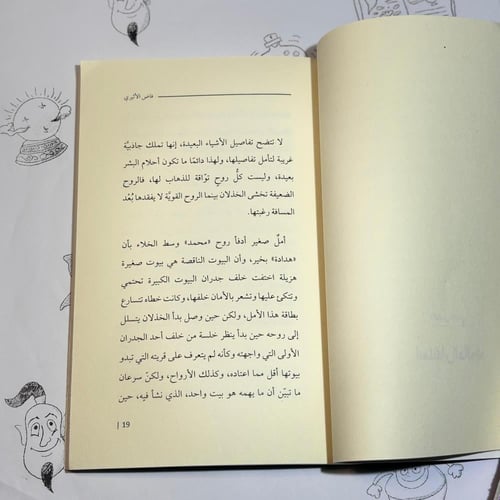 فاض الأثيري
لا تتضح تفاصيل الأشياء البعيدة، إنها تملك جاذبيَّة
غريبة لتأمل تفاصيلها، ولهذا دائمًا ما تكون أحلام البشر
بعيدة، وليست كلُّ روحٍ توّاقة للذهاب لها، فالروح
الضعيفة تخشى الخذلان بينما الروح القويَّة لا يفقدها بُعْد
المسافة رغبتها.
أملٌ صغير أدفأ روح «محمد» وسط الخلاء بأن
«هدادة» بخير، وأن البيوت الناقصة هي بيوت صغيرة
هزيلة اختفت خلف جدران البيوت الكبيرة تحتمي
وتتكئ عليها وتشعر بالأمان خلفها، وكانت خطاه تتسارع
بطاقة هذا الأمل، ولكن حين وصل بدأ الخذلان يتسلل
إلى روحه حين بدأ ينظر خلسة من خلف أحد الجدران
الأولى التي واجهته وكأنه لم يتعرف على قريته التي تبدو
بيوتها أقل مما اعتاده، وكذلك الأرواح، ولكنّ سرعان
ما تبيّن أن ما يهمه هو بيت واحد، الذي نشأ فيه، حين
19 |